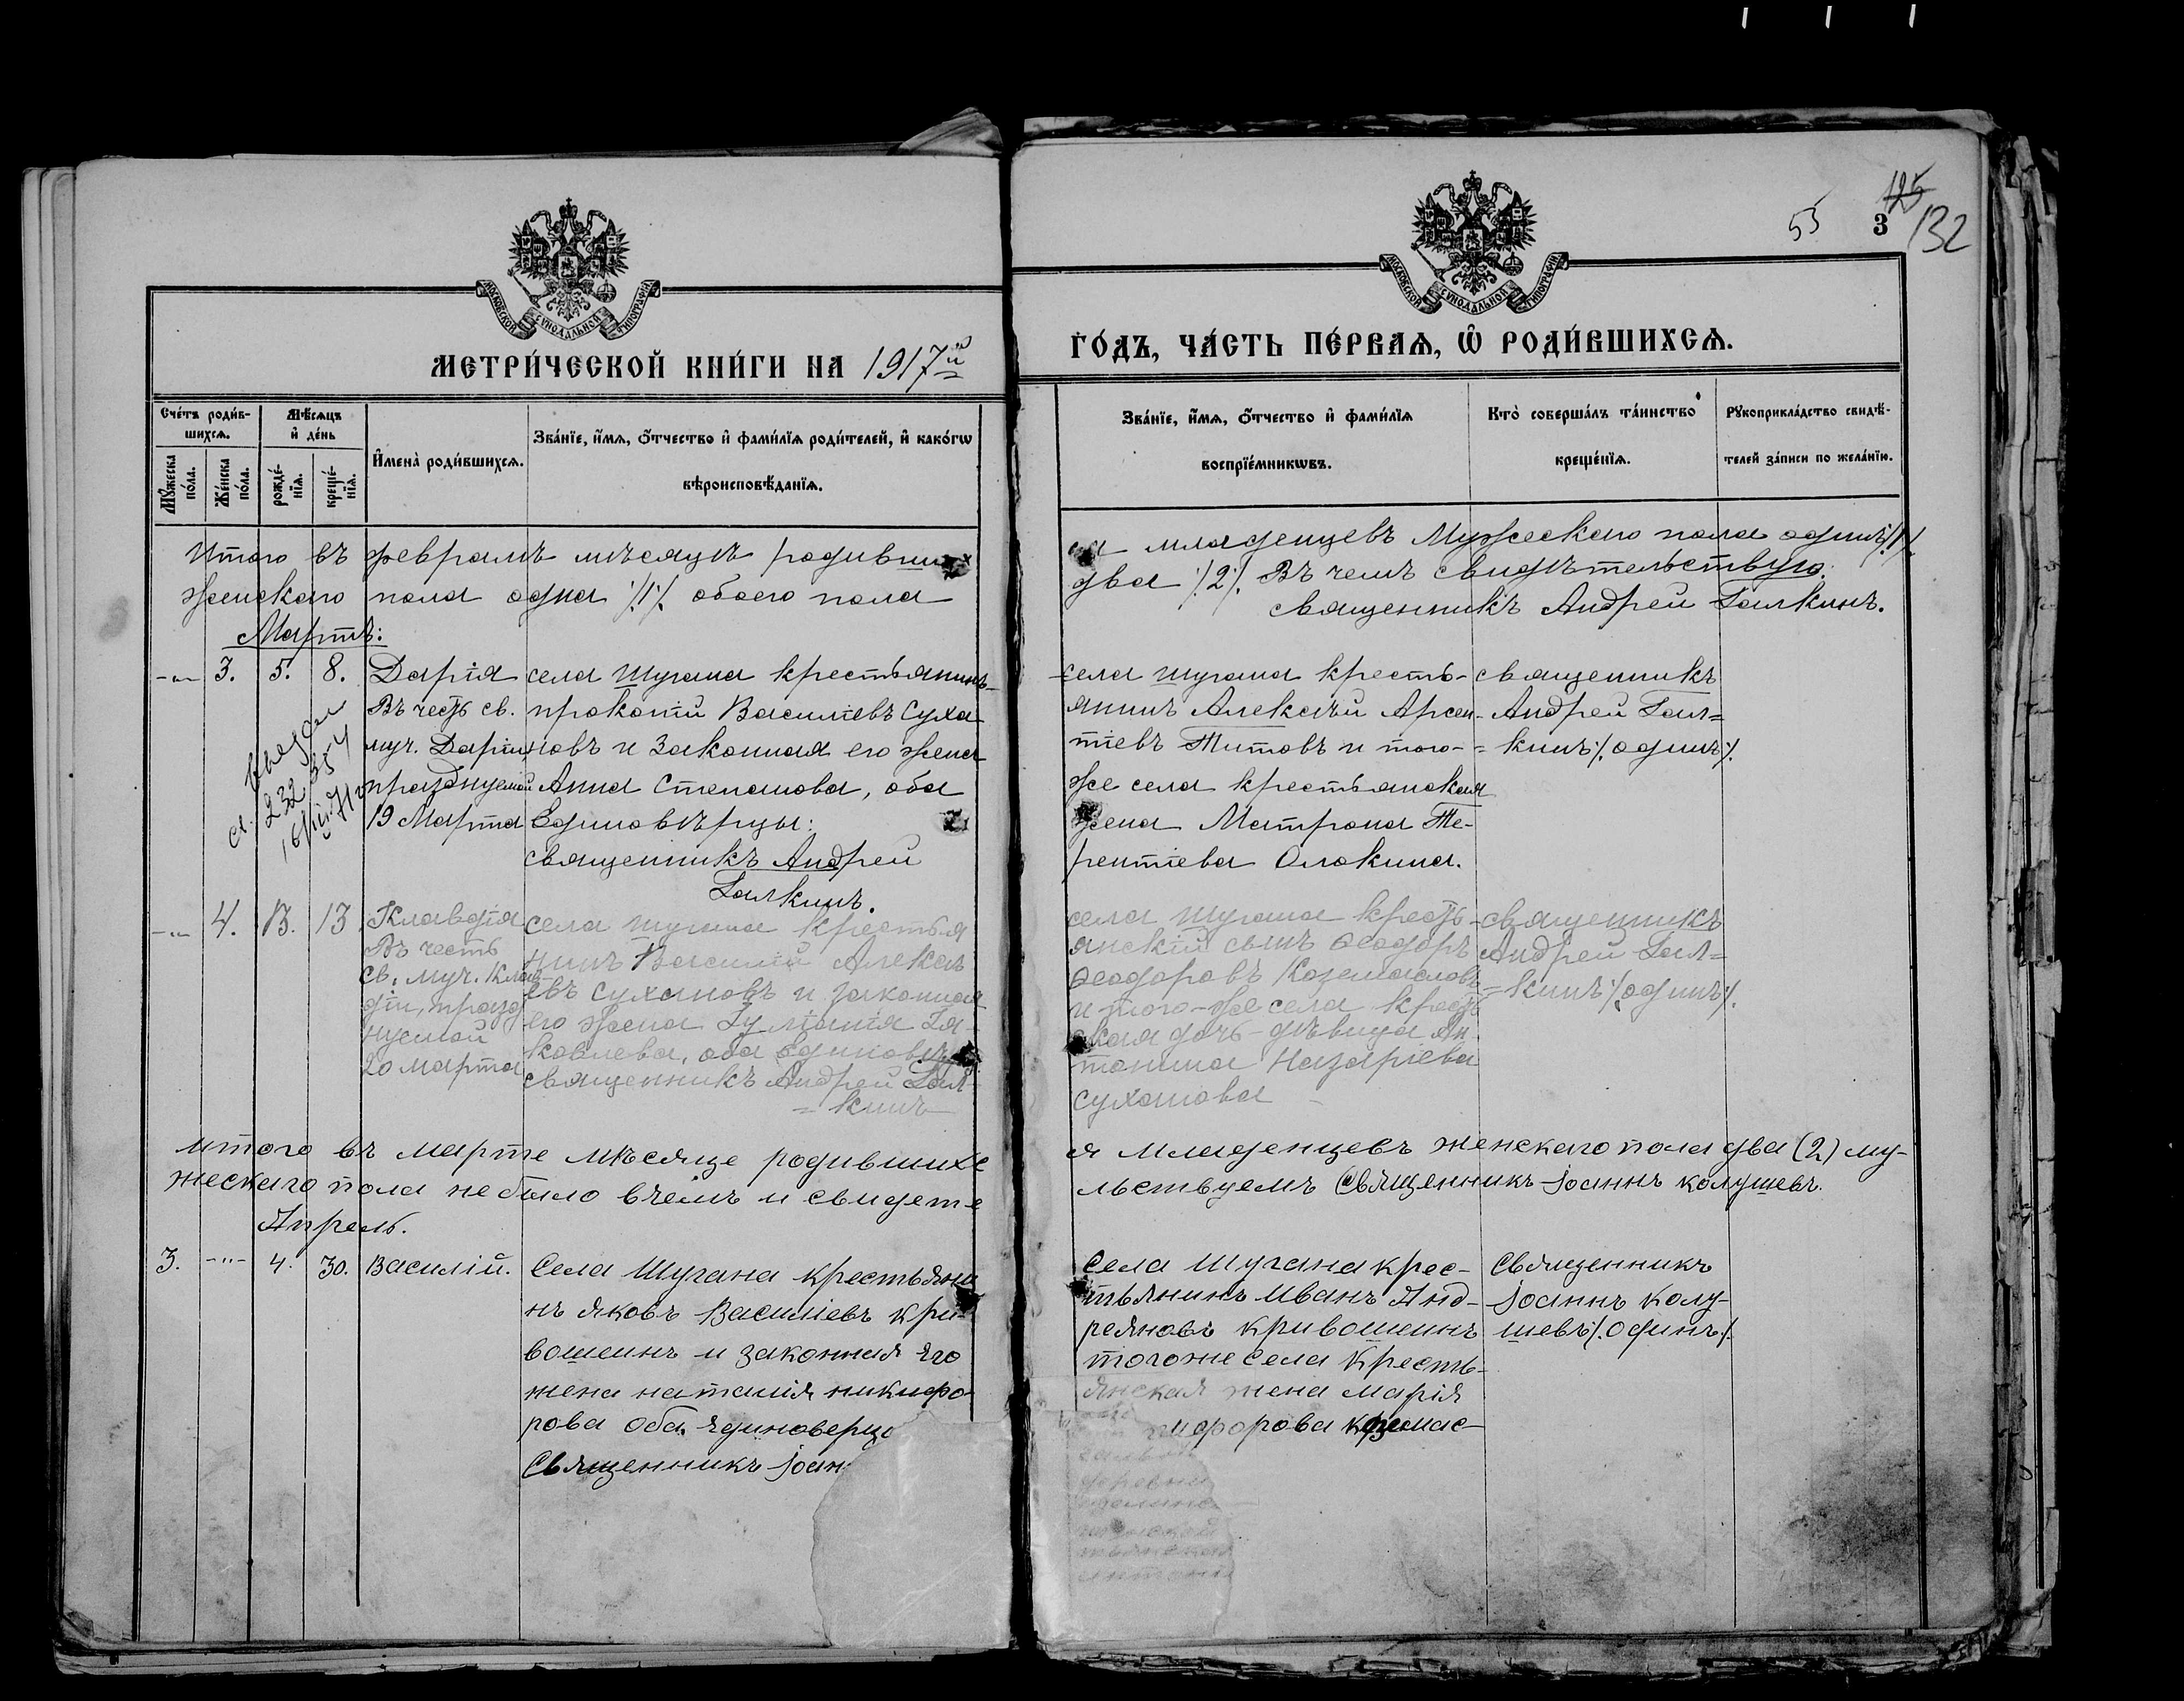 55 125
3 132
МОСКОВСКОЙ СѴНОДАЛЬНОЙ ТИПОГРАФІИ
МОСКОВСКОЙ СѴНОДАЛЬНОЙ ТИПОГРАФІИ
МЕТРИ́ЧЕСКОЙ КНИ́ГИ НА 1917й
ГО́ДЪ, ЧА́СТЬ ПЕ́РВАѦ, Ѡ҆ РОДИ́ВШИХСѦ.
Сче́тъ роди́в-
шихсѧ.
Мѣ́сѧцъ
и҆ де́нь
Мꙋ́жеска по́ла.
Же́нска по́ла.
рожде́-нїѧ.
креще́-нїѧ.
И҆мена̀ роди́вшихсѧ.
Зва́нїе, и҆́мѧ, ѻ҆́тчество и҆ фами́лїѧ роди́телей, и҆ како́гѡ
вѣроисповѣ́данїѧ.
Зва́нїе, и҆́мѧ, ѻ҆́тчество и҆ фами́лїѧ
воспрїе́мникѡвъ.
Кто̀ соверша́лъ та́инство
креще́нїѧ.
Рꙋкоприкла́дство свидѣ́-
телей за́писи по жела́нїю.
Итого въ февралѣ мѣсяцѣ родивших
ся младенцевъ Мужескаго пола одинъ ./1/.
женскаго пола одна ./1/. обоего пола
два ./2/. Въ чемъ свидѣтельствую.
священникъ Андрей Галкинъ.
Мартъ:
-"- 3. 5. 8. Дарія
Въ честь св.
муч. Даріи,
празднуемой
19 Марта
села Шугана крестьянинъ
прокопій Василіевъ Суха-
новъ и законная его жена
Анна Степанова, оба
Единовѣрцы:
священникъ Андрей
Галкинъ.
села Шугана кресть-
янинъ Алексѣй Арсен-
тіевъ Титовъ и того-
же села крестьянская
жена Матрона Те-
рентіева Олокина.
священникъ
Андрей Гал=
=кинъ ./. одинъ ./.
-"- 4. 13 Клавдія
Въ честь
св. муч. Клав-
діи, празд
нуемой
20 марта
села Шугана крестья
нинъ Василій Алексѣ
евъ Сухановъ и законная
его жена Іуліанія Іа-
ковлева, оба Единовѣр
священникъ Андрей Гал
=кинъ
села Шугана кресть-
янскій сынъ Ѳеодоръ
Ѳеодоровъ Коземасловъ
и того-же села крест
ская дочь-дѣвица Ан-
тонина Назаріева
Суханова
священникъ
Андрей Гал=
=кинъ ./. одинъ ./.
итого въ марте мѣсяце родившихс
я Младенцевъ женскаго пола два (2) му-
жескаго пола небыло вчемъ и свидете
льствуемъ Священникъ Іоаннъ колушевъ.
Апрель.
3. -"- 4. 30. Василій.
Села Шугана крестьяни
нъ яковъ Василіевъ кри-
вошеинъ и законная его
жена наталія никифо-
рова оба единоверц
Священникъ Іоан
Села Шугана крес-
тьянинъ Иванъ Анд-
реяновъ кривошеинъ
тогоже села Кресть-
янская жена Марія
ифорова козмас-
Священникъ
Іоаннъ Колу-
шевъ ./. Одинъ ./.
деревни